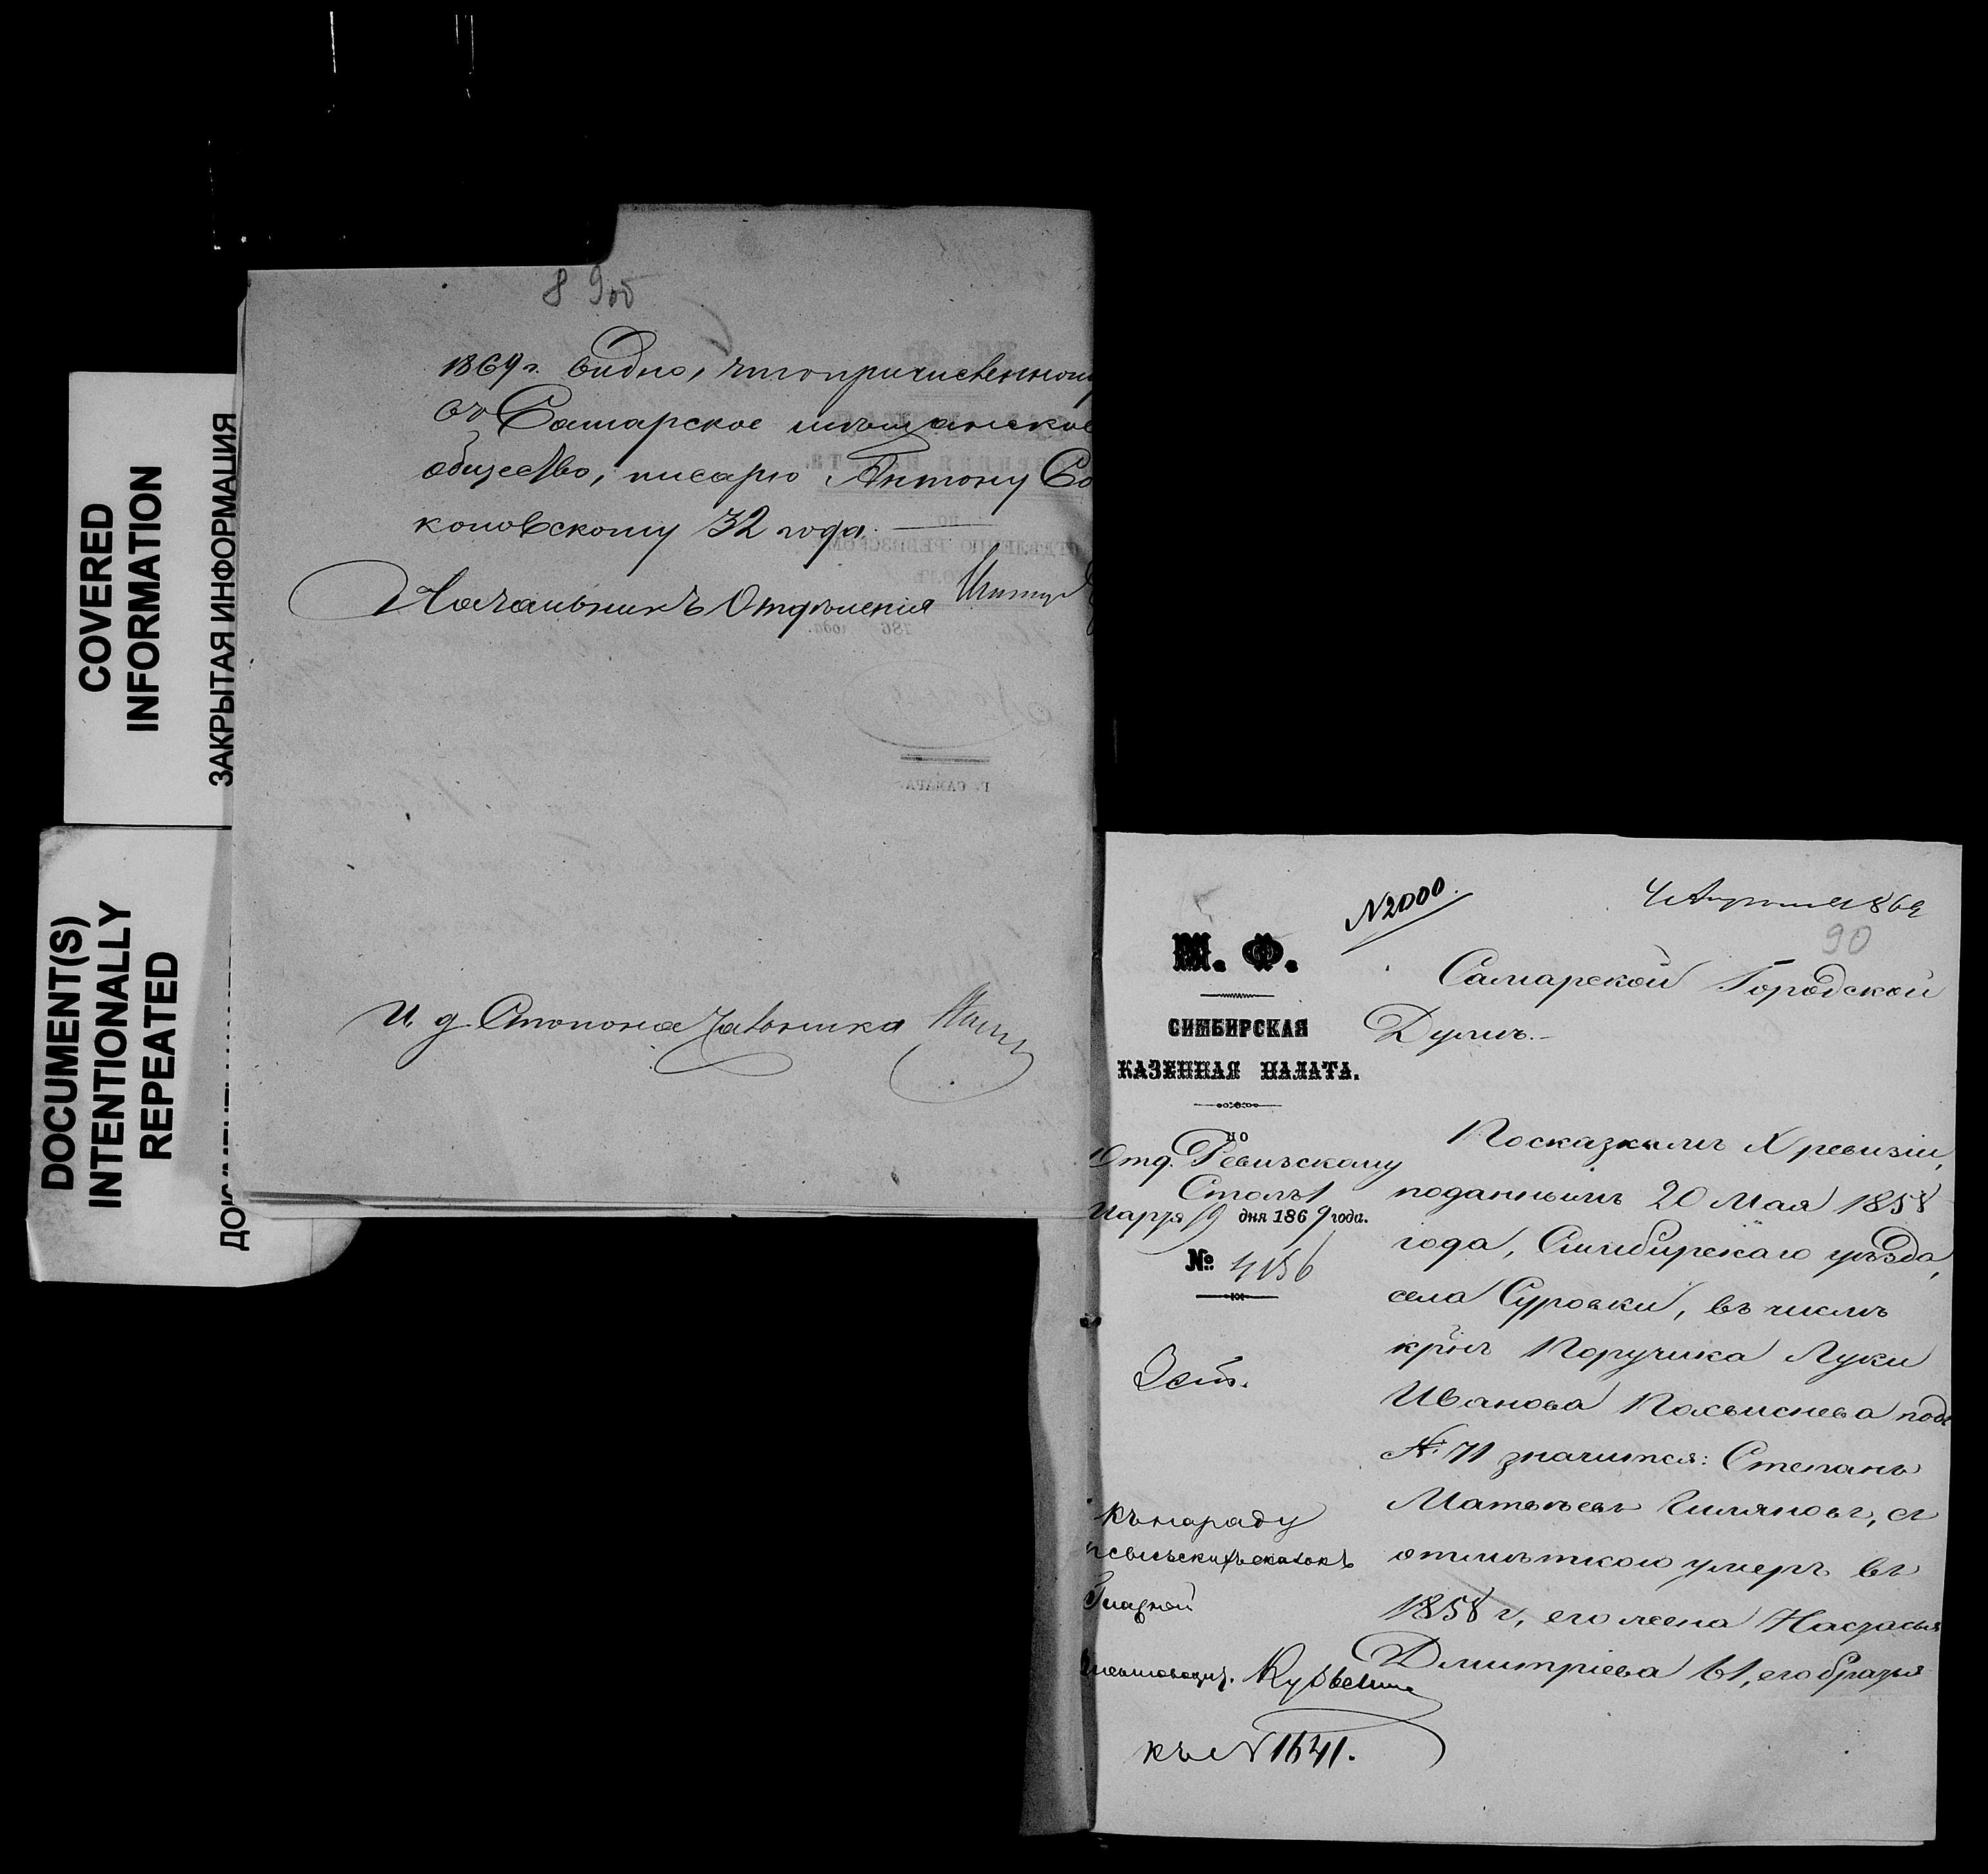 COVERED
INFORMATION
ЗАКРЫТАЯ ИНФОРМАЦИЯ
DOCUMENT(S)
INTENTIONALLY
REPEATED
89об
1869 г. видно, что причисленному
въ Самарское мѣщанское
общество, писарю Антону Со
коловскому 32 года.
Начальникъ Отдѣленія
И. д. Столоначальника
№ 2000
4 Апрѣля 1869
90
М. Ф.
СИМБИРСКАЯ
КАЗЕННАЯ ПАЛАТА.
ПО
Отд. Ревизскому
Столъ 1
Марта 19 дня 1869 года.
№ 4156
Самарской Городской
Думѣ.
По сказкамъ X ревизіи,
поданнымъ 20 Мая 1858
года, Симбирскаго уѣзда,
села Суровки, въ числѣ
крнъ Поручика Луки
Иванова Похвиснева подъ
№ 71 значится: Степанъ
Матвѣевъ, съ
отмѣткою умеръ въ
1858 г, его жена Настасья
Дмитріева 61, его братья
Къ наряду
ревизскихъ сказокъ
къ № 1641.